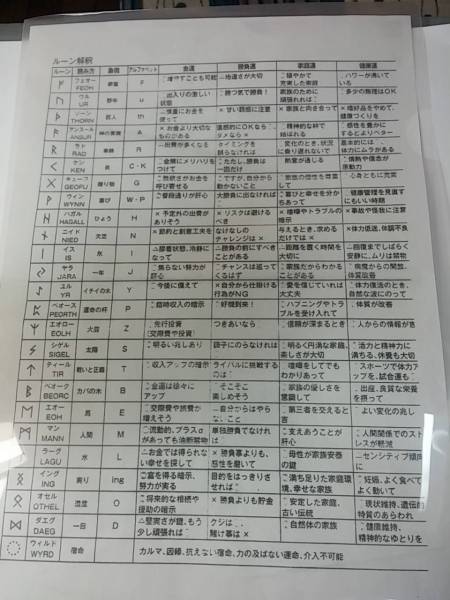 ルーン解釈
ルーン 読み方 意味 アルファベット 金運 勝負運 家庭運 健康運
フェオー FEOH F 増やすことも可能 地道さが大切 穏やかで充実した家庭 パワーが湧いている
ウル UR 野牛 u 出入りの激しい状態 勝つ気で勝負！ 家族のために頑張れれば 多少の無理はOK
ソーン THORN 巨人 th 慎重にお金を使って × 甘い誘惑に注意 家族と向き合って ×
アンスール ANSUR A × お金より大切なものがある 直感的にOKなら ダメなら× 精神的な絆で結ばれる 感性を豊かにするとよりベター
ラド RAD 車輪 R 出費が多くなる タイミングを誤らなければ 変化のとき、状況に乗り遅れないで 基本的には 体力にムラがある
ケン KEN 炎 C・K 金銭にメリハリをつけて ただし、勝負は一回だけ 熱愛が過ぎる 情熱や信念が原動力
ギューフ GEOFU 贈り物 G 無欲さがお金を呼び寄せる ですが、自分から動かないこと 家族の個性を尊重して 心身ともに充実
ウィン WYNN 喜び W・P 普段通りが肝心 大勝負に出なければ 喜びと幸せを分かちあって 健康管理を見直すにもいい時期
ハガル HAGALL ひょう H × 予定外の出費がありそう × リスクは避けるべき × 喧嘩やトラブルの暗示 ×事故や怪我に注意
ニイド NIED 欠乏 N 節約と創意工夫を なけなしのチャレンジは× 与えるとき、求めるだけでは× ×体力低迷、体調不良
イス IS 氷 I 膠着状態、冷静になって 勝負に出すぎに 距離を置く時間を大切に 回復までしばらく安静に、ムリは禁物
ヤラ JARA 一年 J 焦らない努力が 肝心 チャンスは巡ってくるはず 家族だからわかることがある 病魔からの開放、体質改善
ユル YR イチイの木 Y 今後に備えて ×自分から仕掛ける行為がNG 愛を信じていれば大丈夫 体力復活のとき、自然な波にのって
ペオース PEORTH 運命の杯 P 臨時収入の暗示 好機到来！ ハプニングやトラブルを受け入れて 体質が改善
エオロー EOLH 大鹿 Z 先行投資（交際費や投資） つきあいなら 信頼が深まるとき 人からの情報が
シゲル SIGEL 太陽 S 明るい兆しあり 調子にのらなければ 明るく円満な家庭、楽しさが大切 活力と精神力に満ちる、休養も大切
ティール TIR 戦いと正義 T 収入アップの暗示 ライバルに挑戦するのは 喧嘩をしてでもわかりあって スポーツで体力アップを、試合運も
ベオーク BEORC カバの木 B 金運は徐々にアップ そこそこ楽しめそう 家族の優しさを意識して 出産、良質な栄養を摂って
エオー EOH 馬 E 交際費や旅費が増えそう 自分からはやらないこと 第三者を交えると吉 よい変化の兆し
マン MANN 人間 M 流動的、プラスαがあっても油断禁物 単独勝負でなければ 支えあうことが肝心 人間関係でのストレスが軽減
ラーグ LAGU 水 L お金では得られない幸せを探して × 勝負事よりも、感性を磨いて 母性が家族安泰の鍵 センシティブ傾向に
イング ING 実り ing 富を得る暗示、努力が実る 目的をはっきりさせれば 満ち足りた家庭環境、幸せな家族 妊娠、よく食べてよく動いて
オセル OTHEL 領土 O 将来的な相続や援助の暗示 × 勝負よりも貯金 安定した家庭、古い伝統 現状維持、遺伝的特質のあらわれ
ダエグ DAEG 一日 D 堅実さが鍵、もう少し頑張れば クジは 賭け事は× 自然体の家族 健康維持、精神的なゆとりを
ウィルド WYRD 宿命 カルマ、因縁、抗えない宿命、力の及ばない運命、介入不可能